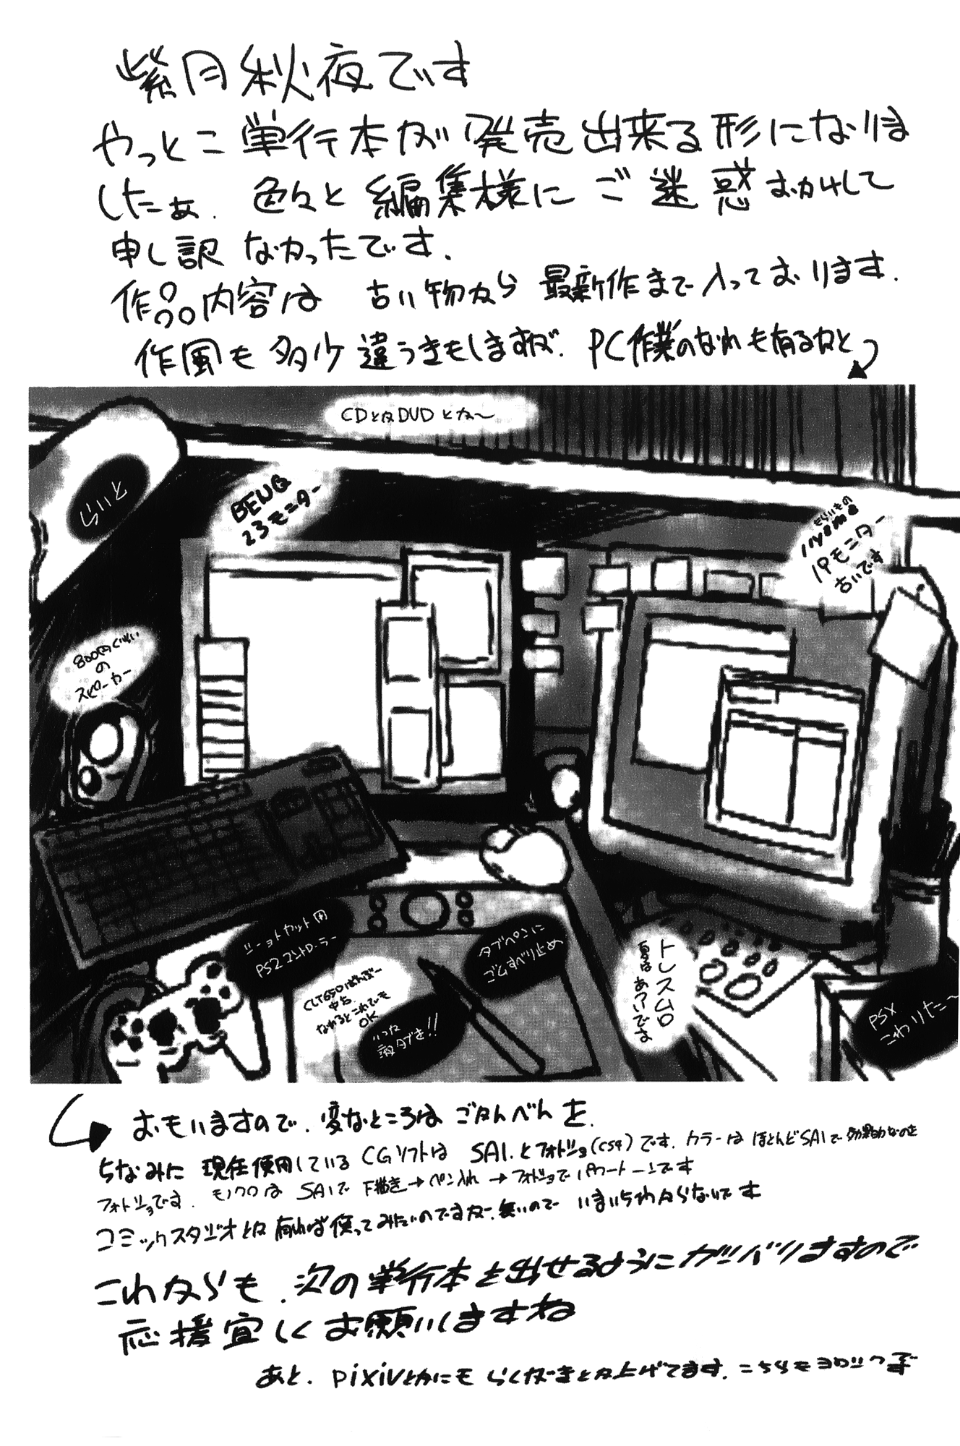 紫月秋夜です
やっとこ単行本が発売出来る形になりま
したぁ.色々と編集様にご迷惑おかけして
申し訳なかったです.
作品内容は 古い物から 最新作まで入っております.
作風も多少違うきもしますが.PC作業のなれも有るかと
CDとかDVDとか〜
らいと
BENQ
23モニター
もらいもの
iiyama
19モニター
古いです
800円くらい
の
スピーカー
ショートカット用
PS2コントローラー
タブペンに
ゴムすべり止め
なれるとこれでも
OK
トレス台
夏はあついです
PSX
こわれた〜
おもいますので.変なところはごかんべんを.
ちなみに 現在使用しているCGソフトは SAI.とフォトショ(CS4)です.カラーは ほとんどSAIで 効果的なのを
フォトショです. モノクロは SAIで 下描き→ペン入れ→フォトショで
コミックスタジオとか有れば使ってみたいのですが.無いので いまいちわからないです
これからも.次の単行本を出せるようにガンバりますので
応援宜しくお願いしますね
あと.pixivとかにも らくがきとか上げてます.こちらもヨロシク